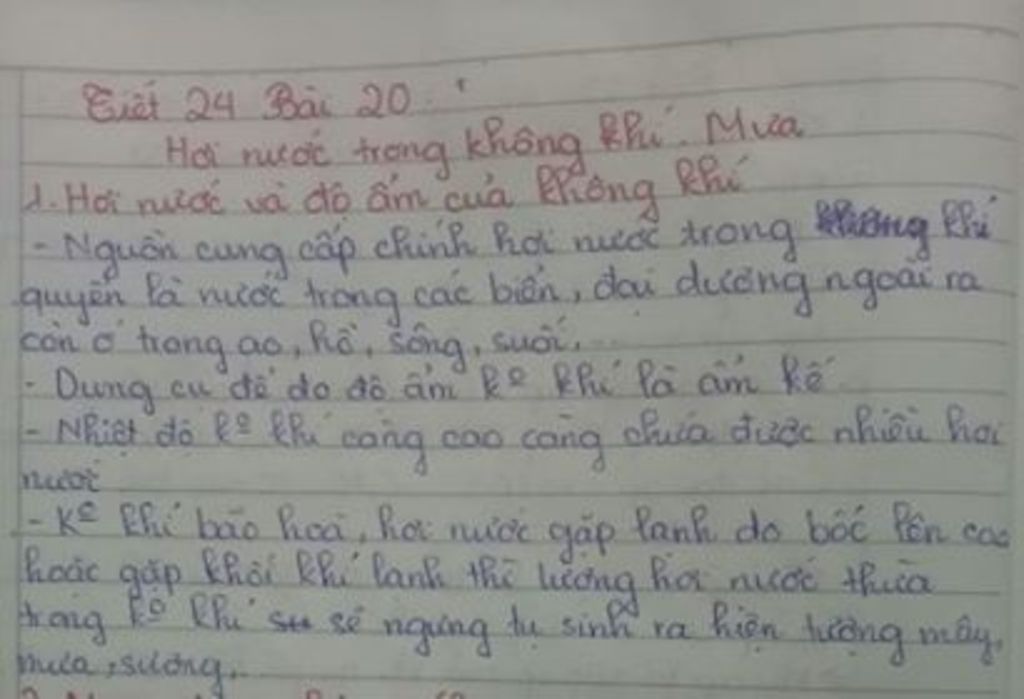 Tiết 24 Bài 20
Hơi nước trong không khí. Mưa
1. Hơi nước và độ ẩm của không khí
- Nguồn cung cấp chính hơi nước trong không khí
quyển là nước trong các biển, đại dương ngoài ra
còn ở trong ao, hồ, sông, suối,...
- Dụng cụ để đo độ ẩm kº khí là ẩm kế
- Nhiệt độ kº khí càng cao càng chứa được nhiều hơi
nước
- Kº khí bão hoà, hơi nước gặp lạnh do bốc lên cao
hoặc gặp khối khí lạnh thì lượng hơi nước thừa
trong kº khí sẽ ngưng tụ sinh ra hiện tượng mây,
mưa, sương,..